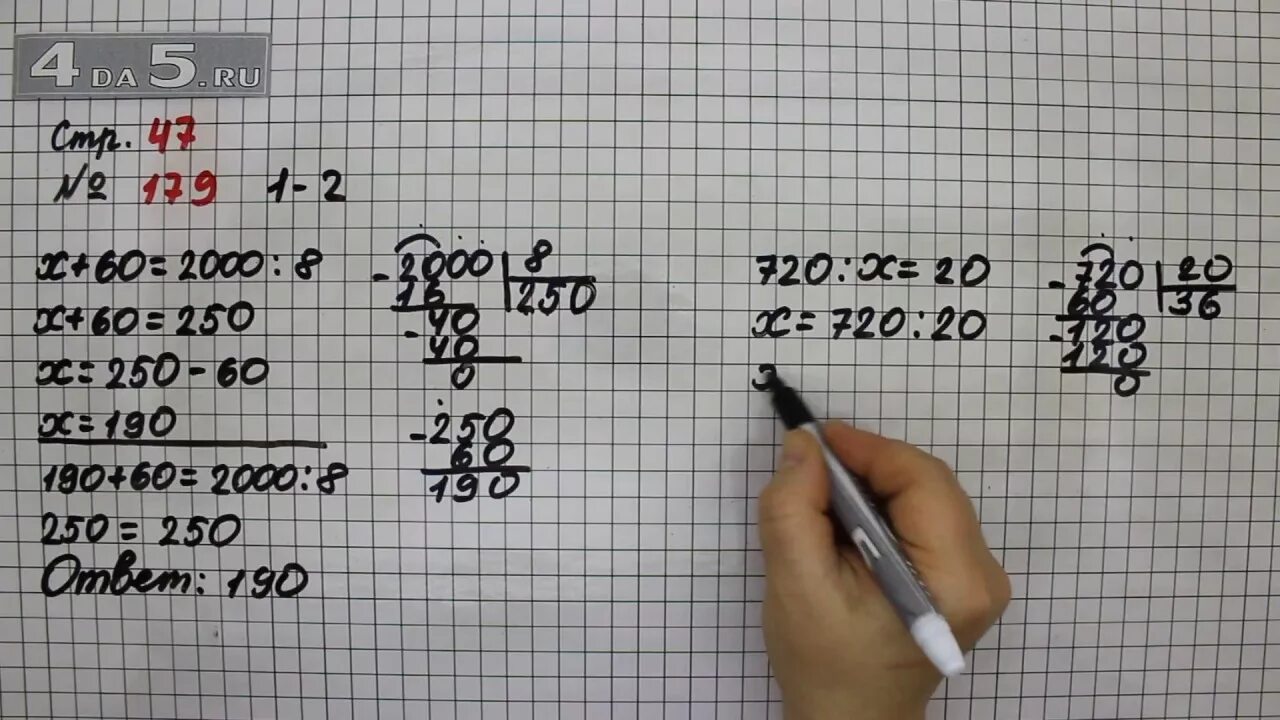 4DA5.RU
Стр. 47
№ 179 1-2
x+60=2000:8
x+60=250
x=250-60
x=190
190+60=2000:8
250=250
Ответ: 190
-2000 8
16 250
-40
40
0
-250
60
190
720:x=20
x=720:20
x
-720 20
60 36
-120
120
0